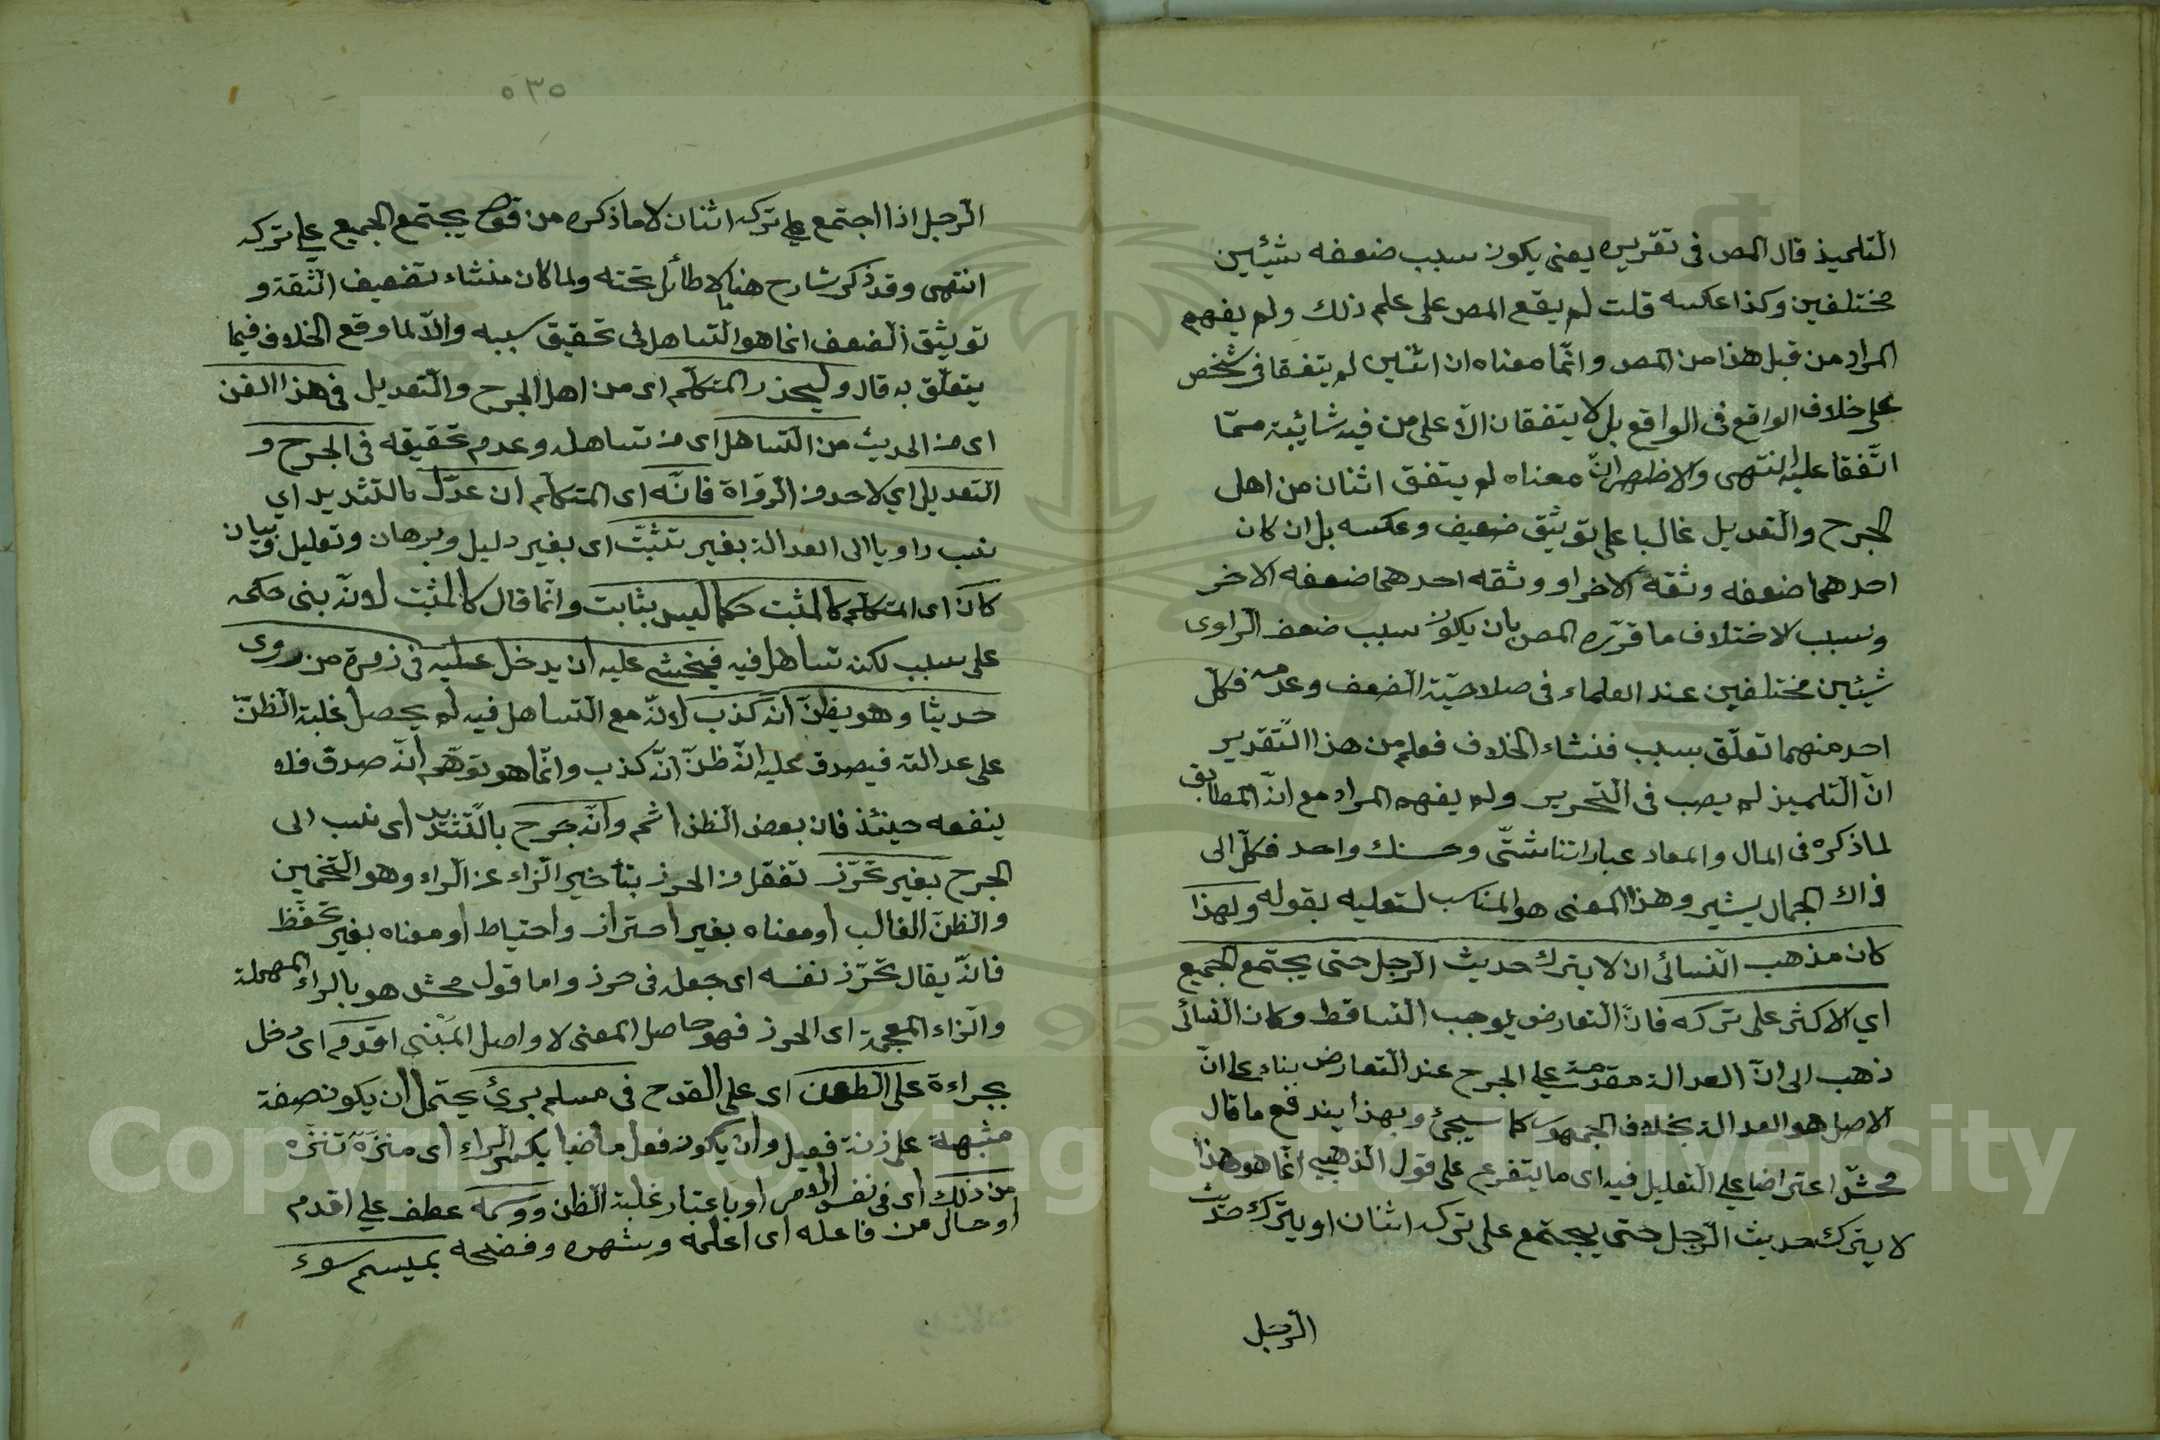 التلميذ قال المص فى تقريره يعنى يكون سبب ضعفه شيئين
مختلفين وكذا عكسه قلت لم يقع المص على علم ذلك ولم يفهم
المراد من قبل هذا من المص وانّما معناه ان اثنين لم يتفقا فى شخص
على خلاف الواقع فى الواقع بل لا يتفقان الّا على من فيه شائبة ممّا
اتّفقا عليه انتهى والاظهر انّ معناه لم يتفق اثنان من اهل
الجرح والتعديل غالبا على توثيق ضعيف وعكسه بل ان كان
احدهما ضعفه وثقه الاخر او وثقه احدهما ضعفه الاخر
وسبب الاختلاف ما قرّره المص بان يكون سبب ضعف الراوى
شيئين مختلفين عند العلماء فى صلاحيّة الضعف وعدمه فكلّ
احد منهما تعلّق بسبب فنشاء الخلاف فعلم من هذا التّقدير
انّ التّلميذ لم يصب فى التّحرير ولم يفهم المراد مع انّه المطابق
لما ذكره فى المال والمعاد عباراتنا شتّى وحسنك واحد فكلّ الى
ذاك الجمال يشير وهذا المعنى هو المناسب لتعليه بقوله ولهذا
كان مذهب النّسائى ان لا يترك حديث الرّجل حتى يجتمع الجميع
اي الاكثر على تركه فانّ التّعارض يوجب التّساقط وكان النّسائى
ذهب الى انّ العدالة مقدمة على الجرح عند التّعارض بناء على انّ
الاصل هو العدالة بخلاف الجمهور كما سيجئ وبهذا يندفع ما قال
محشّ اعتراضا على التّعليل فيه اى ما يتفرع على قول الذهبى انّما هو هذا
لا يترك حديث الرّجل حتى يجتمع على تركه اثنان او يترك حديث
الرّجل
٥٣٥
الرّجل اذا اجتمع على تركه اثنان لا ما ذكره من قوله يجتمع الجميع على تركه
انتهى وقد ذكر شارح هنا لا طائل تحته ولما كان منشاء تضعيف الثّقة و
توثيق الضعف انما هو التّساهل فى تحقيق سببه والّا لما وقع الخلاف فيما
يتعلّق به قال وليحذر المتكلّم اى من اهل الجرح والتّعديل فى هذا الفن
اى من الحديث من التّساهل اى من تساهله وعدم تحقيقه فى الجرح و
التّعديل اي لاحد من الرّواة فانّه اى المتكلّم ان عدّل بالتّشديد اي
نسب راويا الى العدالة بغير تثبّت اى بغير دليل وبرهان وتعليل وبيان
كان اى المتكلّم كالمثبت حكما ليس بثابت وانّما قال كالمثبت لانّه بنى حكمه
على سبب لكنه تساهل فيه فيخشى عليه ان يدخل عليه فى زمرة من روى
حديثا وهو يظنّ انّه كذب لانّه مع التّساهل فيه لم يحصل غلبة الظنّ
على عدالته فيصدق عليه انّه ظنّ انّه كذب وانّما هو توهّم انّه صدق فلا
ينفعه حينئذ فان بعض الظن اثم وان جرح بالتّشديد اى نسب الى
الجرح بغير تحرّز تفعّل من الحرز بتأخير الزّاء عن الراء وهو التّخمين
والظنّ الغالب او معناه بغير احتراز واحتياط او معناه بغير تحفّظ
فانّه يقال تحرّز نفسه اى جعله فى حرز واما قول محشّ هو بالراء المهملة
والزاء المعجمة اى الحرز فهو حاصل المعنى لا واصل المبنى اقدم اى دخل
بجراءة على الطعن اى على القدح فى مسلم برئ يحتمل ان يكون صفة
مشبهة على زنة فعيل وان يكون فعل ماضيا بكسر الراء اى منزّه تنزّه
من ذلك اى فى نفس الامر او باعتبار غلبة الظن ووسمه عطف على اقدم
او حال من فاعله اى اعلمه وشهره وفضحه بميسم سوء